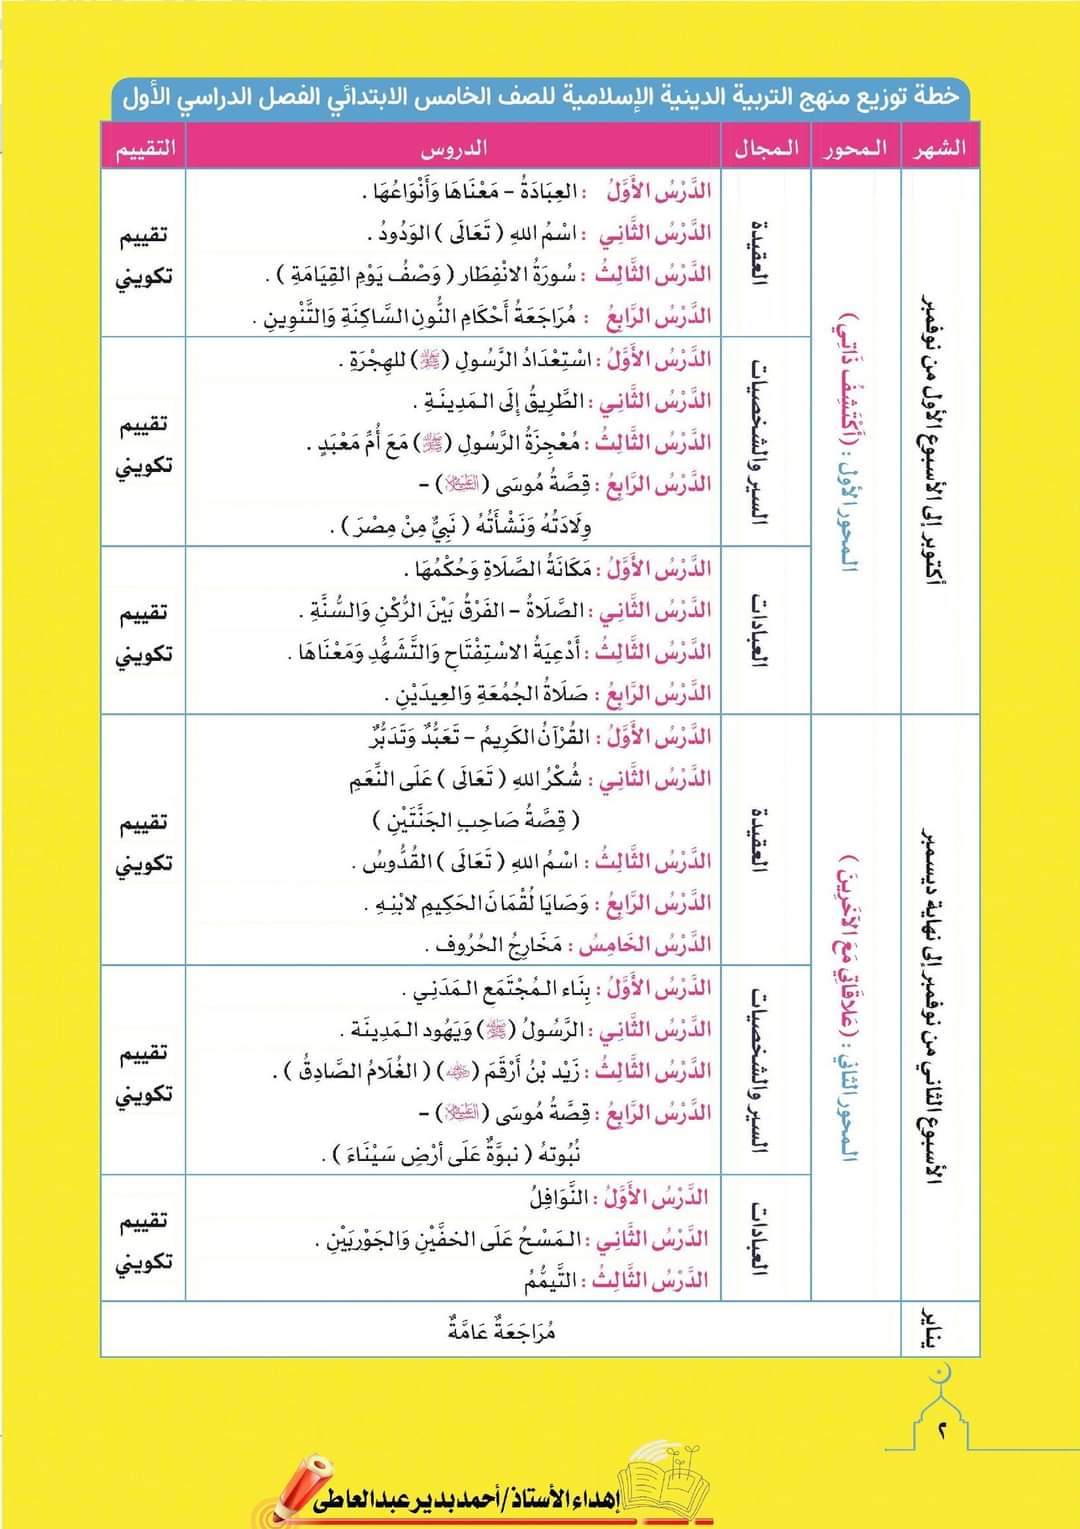 خطة توزيع منهج التربية الدينية الإسلامية للصف الخامس الابتدائي الفصل الدراسي الأول
الشهر المحور المجال الدروس التقييم
أكتوبر إلى الأسبوع الأول من نوفمبر
المحور الأول : (أَكْتَشِفُ ذَاتِي)
العقيدة
الدَّرْسُ الأَوَّلُ : العِبَادَةُ - مَعْنَاهَا وَأَنْوَاعُهَا .
الدَّرْسُ الثَّانِي : اسْمُ اللهِ ( تَعَالَى ) الوَدُودُ .
الدَّرْسُ الثَّالِثُ : سُورَةُ الانْفِطَار ( وَصْفُ يَوْمِ القِيَامَةِ ) .
الدَّرْسُ الرَّابِعُ : مُرَاجَعَةُ أَحْكَامِ النُّونِ السَّاكِنَةِ وَالتَّنْوِينِ .
تقييم
تكويني
السير والشخصيات
الدَّرْسُ الأَوَّلُ : اسْتِعْدَادُ الرَّسُولِ (ﷺ) للهِجْرَةِ .
الدَّرْسُ الثَّانِي : الطَّرِيقُ إِلَى المَدِينَةِ .
الدَّرْسُ الثَّالِثُ : مُعْجِزَةُ الرَّسُولِ (ﷺ) مَعَ أُمِّ مَعْبَدٍ .
الدَّرْسُ الرَّابِعُ : قِصَّةُ مُوسَى (عليه السلام) -
وِلَادَتُهُ وَنَشْأَتُهُ ( نَبِيٌّ مِنْ مِصْرَ ) .
تقييم
تكويني
العبادات
الدَّرْسُ الأَوَّلُ : مَكَانَةُ الصَّلَاةِ وَحُكْمُهَا .
الدَّرْسُ الثَّانِي : الصَّلَاةُ - الفَرْقُ بَيْنَ الرُّكْنِ وَالسُّنَّةِ .
الدَّرْسُ الثَّالِثُ : أَدْعِيَةُ الاسْتِفْتَاحِ وَالتَّشَهُّدِ وَمَعْنَاهَا .
الدَّرْسُ الرَّابِعُ : صَلَاةُ الجُمُعَةِ وَالعِيدَيْنِ .
تقييم
تكويني
الأسبوع الثاني من نوفمبر إلى نهاية ديسمبر
المحور الثاني : (عَلاقَاتِي مَعَ الآخَرِينَ )
العقيدة
الدَّرْسُ الأَوَّلُ : القُرْآنُ الكَرِيمُ - تَعَبُّدٌ وَتَدَبُّرٌ
الدَّرْسُ الثَّانِي : شُكْرُ اللهِ ( تَعَالَى ) عَلَى النِّعَمِ
( قِصَّةُ صَاحِبِ الجَنَّتَيْنِ )
الدَّرْسُ الثَّالِثُ : اسْمُ اللهِ ( تَعَالَى ) القُدُّوسُ .
الدَّرْسُ الرَّابِعُ : وَصَايَا لُقْمَانَ الحَكِيمِ لابْنِهِ .
الدَّرْسُ الخَامِسُ : مَخَارِجُ الحُرُوفِ .
تقييم
تكويني
السير والشخصيات
الدَّرْسُ الأَوَّلُ : بِنَاء المُجْتَمَعِ المَدَنِي .
الدَّرْسُ الثَّانِي : الرَّسُولُ (ﷺ) وَيَهُود المَدِينَة .
الدَّرْسُ الثَّالِثُ : زَيْد بْنُ أَرْقَمَ (رضي الله عنه) ( الغُلَامُ الصَّادِقُ ) .
الدَّرْسُ الرَّابِعُ : قِصَّةُ مُوسَى (عليه السلام) -
نُبُوتهُ ( نبوَّةٌ عَلَى أرْضِ سَيْنَاءَ ) .
تقييم
تكويني
العبادات
الدَّرْسُ الأَوَّلُ : النَّوَافِلُ
الدَّرْسُ الثَّانِي : المَسْحُ عَلَى الخفَّيْنِ وَالجَوْرَبَيْنِ .
الدَّرْسُ الثَّالِثُ : التَّيمُّمُ
تقييم
تكويني
يناير
مُرَاجَعَةٌ عَامَّةٌ
٢
إهداء الأستاذ/أحمد بدير عبد العاطى